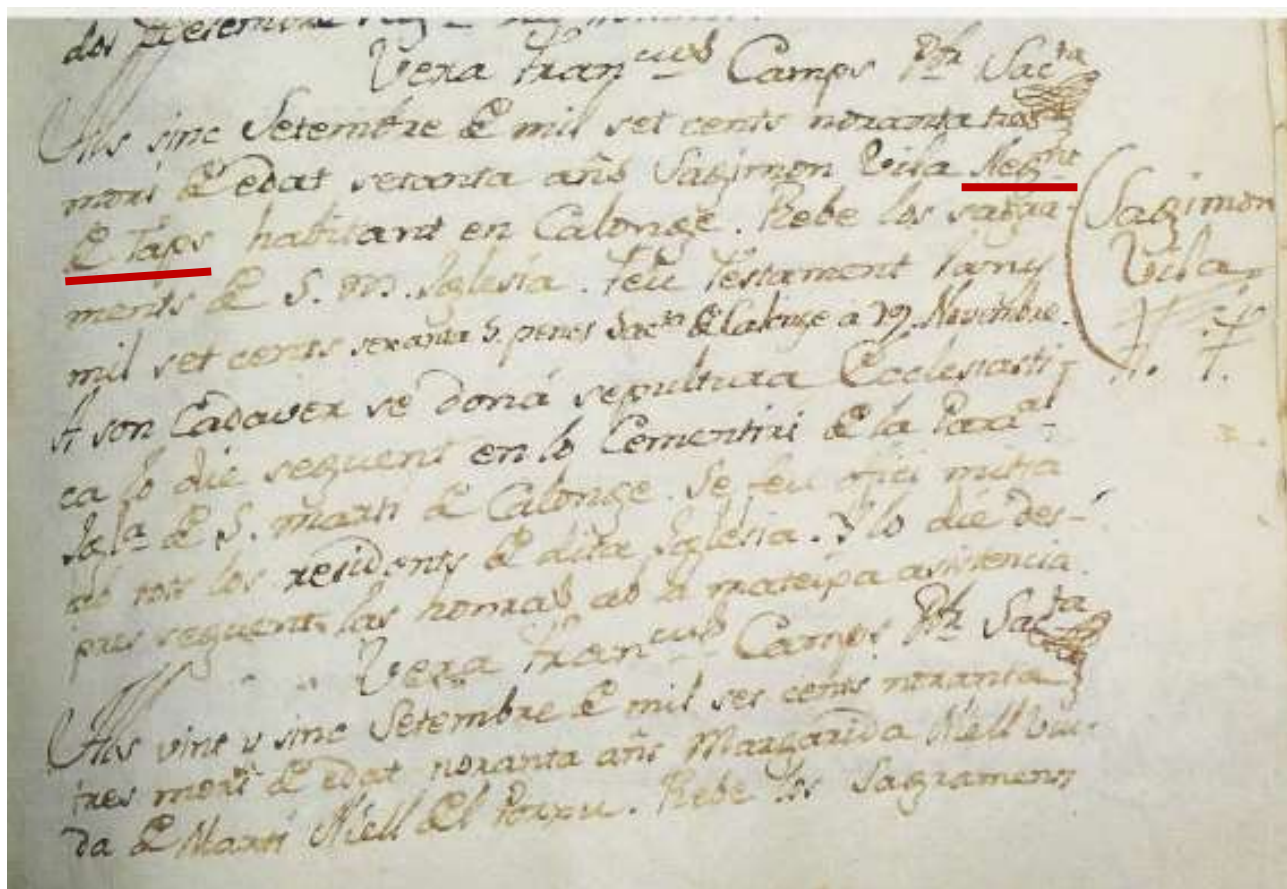 dos Desembre
Vera Fran.cus Camps Pbr. Sac.ta
Als sinc Setembre de mil set cents noranta tres
mori de edat setanta añs Sagimon Vila Neg.nt
de Taps habitant en Calonge. Rebe los sagra-
ments de S. M. Iglesia. feu testament lany
mil set cents sexanta 5. penes Sac.ta de Calonge a 29 Novembre.
A son Cadaver se donà sepultura Ecclesiasti-
ca lo die seguent en lo Cementiri de la Parra.al
Igla. de S. Marti de Calonge. Se feu ofici mitja
tots los residents de dita Iglesia. Y lo die des-
pres seguent las honras ab la mateixa asistencia.
Vera Fran.cus Camps Pbr. Sac.ta
Als vint y sinc Setembre de mil set cents noranta
tres mori de edat noranta añs Margarida Niell viu-
da de Marti Niell del Rebe los Sagraments
Sagimon
Vila